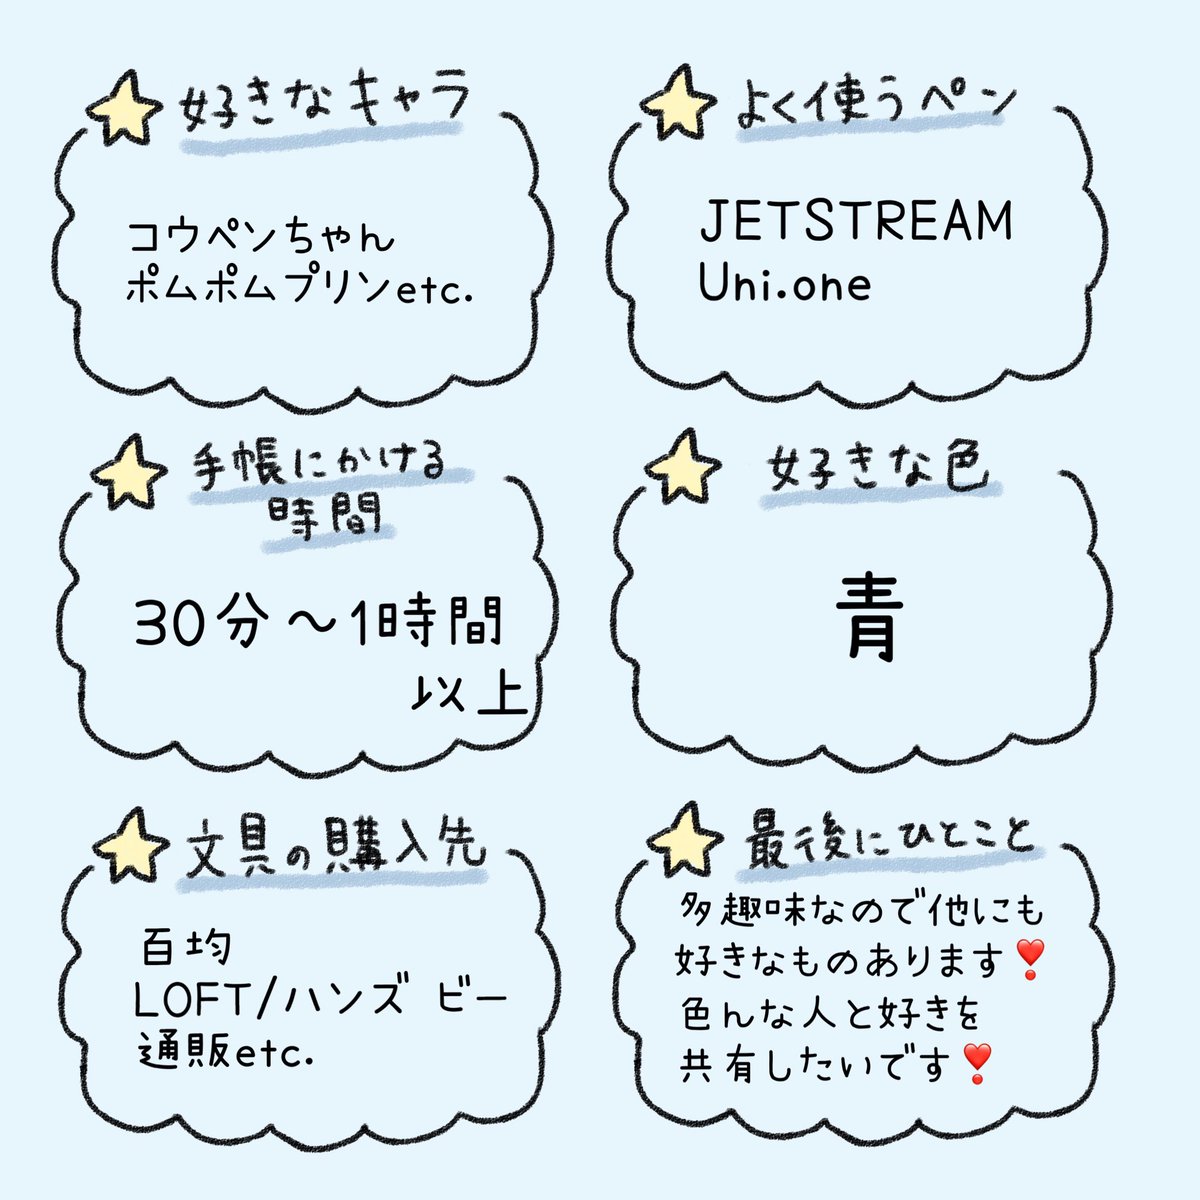 好きなキャラ
コウペンちゃん
ポムポムプリンetc.
よく使うペン
JETSTREAM
Uni.one
手帳にかける
時間
30分～1時間
以上
好きな色
青
文具の購入先
百均
LOFT/ハンズ ビー
通販etc.
最後にひとこと
多趣味なので他にも
好きなものあります❣️
色んな人と好きを
共有したいです❣️